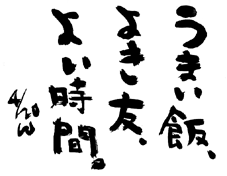 うまい飯、
よき友、
よい時間。